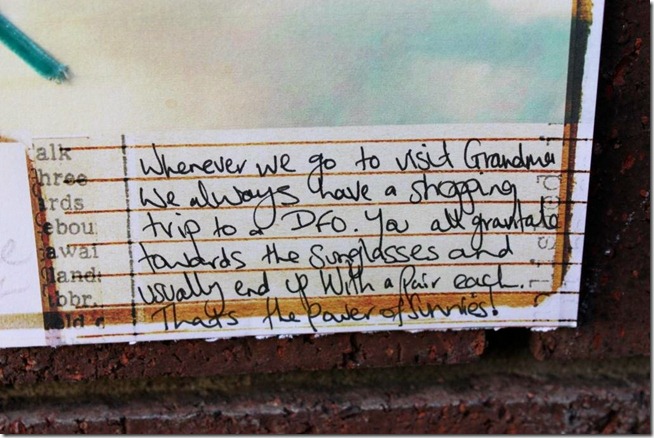 alk
hree
rds
ebou
awai
land:
obr.
Whenever we go to visit Grandma
We always have a shopping
trip to a DFO. You all gravitate
towards the Sunglasses and
usually end up With a Pair each.
Thats the Power of Sunnies!